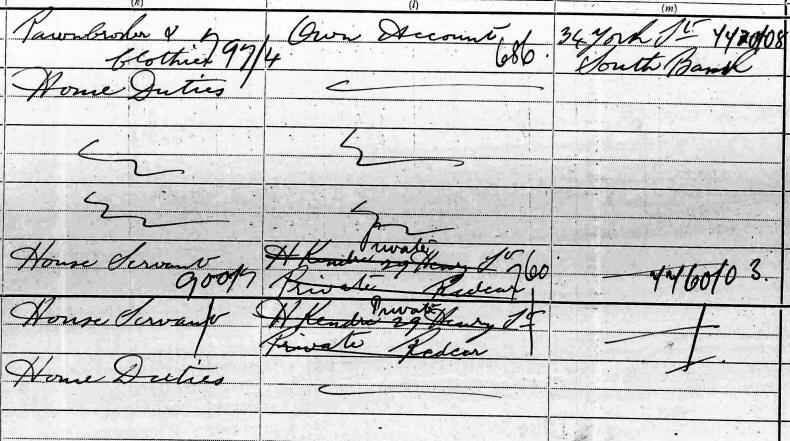 (k) (l) (m)
Pawnbroker & Own Account 34 York St
Clothier 797/4 686. South Bank
Home Duties
Private
House Servant H Kendre 29 Henry St 760
900/7 Private Redcar
Private
House Servant H Kendre 29 Henry St
Private Redcar
Home Duties